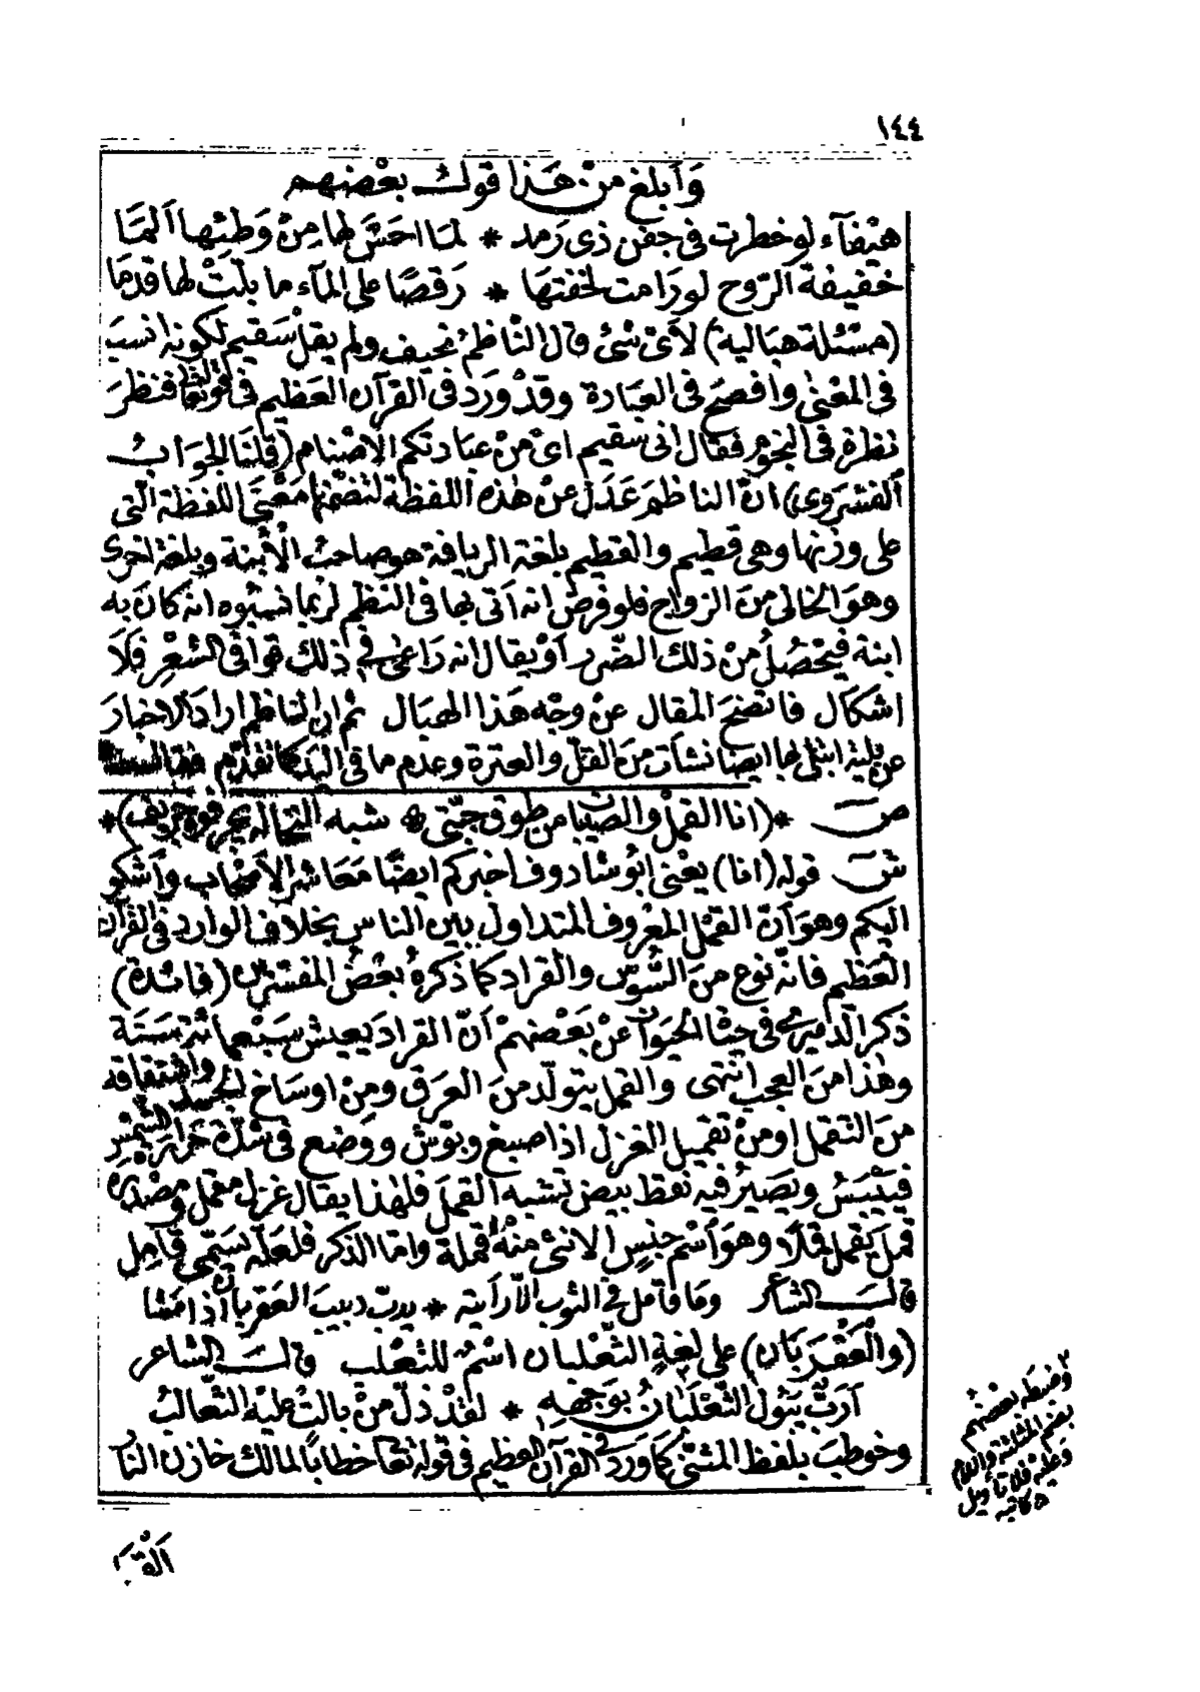 ١٤٤
وَأبلغ مِنْ هَذا قول بعْضهم
هيْفآء لو خطرت فى جفن ذى رَمد * لمَا احَسَّ لهَا مِنْ وَطئِها اَلمَا
خفيفة الرّوح لو رَامت لخفتهَا * رَقصًا على المآء ما بلّتْ لها قدمَا
(مسْئلة هبالية) لأىّ شئ قال النّاظم نحيف ولم يقلْ سَقيم لكونه انسبَ
فى المعْنى وافصَح فى العبَارة وقدْ وَرَد فى القرآن العَظيم فى قوله تعالى فنظرَ
نظرة فى النجوم فقال انى سَقيم اىْ مِنْ عبَادتكم الاصْنام (قلنَا الجوَابُ
الفشروى) انّ الناظمَ عَدَل عنْ هٰذه اللفظة لتضمّنها مَعْنَى اللفظة الّتى
على وزنها وهى قطيم والقطيم بلغة الريافة هو صاحبُ الأبنة وبلغة اخرى
وهوَ الخالى منَ الزواج فلو فرض انه اَتى بها فى النظم لربما نسَبُوه انه كان به
ابنة فيَحْصُلُ منْ ذلك الضّرر اَوْ يقال انه رَاعى فى ذلك قوافى الشعْر فلَا
اشكال فاتضحَ المقال عنْ وجْه هَذا الهبَال ثم ان الناظم ارادَ الاخبار
عن بلية ابتلى بها ايضا نشأت منَ القلّ والعترة وعدم ما فى اليَد كما تقدّم فقال
ص * (انا القملْ والصيبان من طوق جبّتى * شبه النخاله يجرفوه جريف) *
ش قوله (انا) يعْنى ابُو شادوف اخبركم ايضًا مَعَاشر الأصْحاب وَأشكو
اليكم وهوَ اَنّ القمْل المعْروف المتداول بين الناس بخلاف الوارد فى القرآن
العَظيم فانّه نوع منَ السُّوس والقراد كما ذكرهُ بعْضُ المفسّرين (فائدة)
ذكر الدّميرى فى حيٰاة الحيَوان عنْ بَعْضهمْ اَنّ القرادَ يعيش سَبْعمائة سَنَة
وهٰذا منَ العجب انتهى والقمل يتولّد منَ العرَق ومِنْ اوسَاخ الجسد واشتقاقه
منَ التقمل او منْ تقميل الغزل اذا صبغ وبوّش ووضع فى شدّة حَرارة الشمْس
فيَيْبَسْ ويَصيرُ فيه نقط بيض تشبه القملَ فلهٰذا يقال غزل مقمل ومصْدره
قمل يقمل قملًا وهوَ اسْم جنسٍ الانثى منْهُ قملة وامّا الذكر فلعَله يسَمّى قامِل
قال الشاعر وَمَا قامل فى الثوب الّا رَأيته * يدبّ دبيبَ العَقربان اذا مَشا
(والْعَقْرَبَان) على لغةِ الثعْلبان اسْمٌ للثعْلب قال الشاعر
اَرَبٌّ يَبُولُ الثّعْلبَانُ بوَجْههِ * لقدْ ذلّ منْ بالتْ عليْه الثّعالبُ
وخوطبَ بلفظ المثنّى كمَا وَرَدَ فى القرآن العظيم فى قوله تعالى خطابًا لمالك خازن النار
اَلْقيَا
٢ وضبطه بعضهم
بضم المثلثة واللام
وعليه فلا تأويل
اه كاتبه